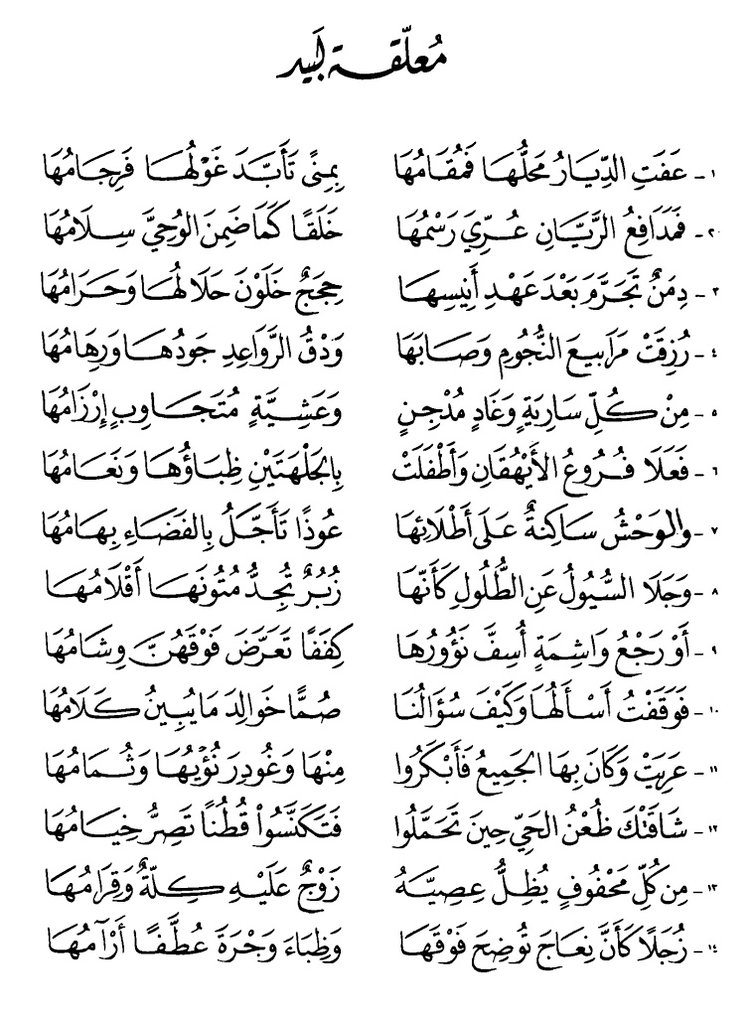 مُعلّقة لَبيد
١ - عَفَتِ الدِّيَارُ مَحَلُّهَا فَمُقَامُهَا بِمِنًى تَأَبَّدَ غَوْلُهَا فَرِجَامُهَا
٢ - فَمَدَافِعُ الرَّيَّانِ عُرِّيَ رَسْمُهَا خَلَقًا كَمَا ضَمِنَ الوُحِيَّ سِلَامُهَا
٣ - دِمَنٌ تَجَرَّمَ بَعْدَ عَهْدِ أَنِيسِهَا حِجَجٌ خَلَوْنَ حَلَالُهَا وَحَرَامُهَا
٤ - رُزِقَتْ مَرَابِيعَ النُّجُومِ وَصَابَهَا وَدْقُ الرَّوَاعِدِ جَوْدُهَا وَرِهَامُهَا
٥ - مِنْ كُلِّ سَارِيَةٍ وَغَادٍ مُدْجِنٍ وَعَشِيَّةٍ مُتَجَاوِبٍ إِرْزَامُهَا
٦ - فَعَلَا فُرُوعُ الأَيْهُقَانِ وَأَطْفَلَتْ بِالجَلْهَتَيْنِ ظِبَاؤُهَا وَنَعَامُهَا
٧ - والوَحْشُ سَاكِنَةٌ عَلَى أَطْلَائِهَا عُوذًا تَأَجَّلُ بِالفَضَاءِ بِهَامُهَا
٨ - وَجَلَا السُّيُولُ عَنِ الطُّلُولِ كَأَنَّهَا زُبُرٌ تُجِدُّ مُتُونَهَا أَقْلَامُهَا
٩ - أَوْ رَجْعُ وَاشِمَةٍ أُسِفَّ نَؤُورُهَا كِفَفًا تَعَرَّضَ فَوْقَهُنَّ وِشَامُهَا
١٠ - فَوَقَفْتُ أَسْأَلُهَا وَكَيْفَ سُؤَالُنَا صُمًّا خَوَالِدَ مَا يُبِينُ كَلَامُهَا
١١ - عَرِيَتْ وَكَانَ بِهَا الجَمِيعُ فَأَبْكَرُوا مِنْهَا وَغُودِرَ نُؤْيُهَا وَثُمَامُهَا
١٢ - شَاقَتْكَ ظُعْنُ الحَيِّ حِينَ تَحَمَّلُوا فَتَكَنَّسُوا قُطُنًا تَصِرُّ خِيَامُهَا
١٣ - مِن كُلِّ مَحْفُوفٍ يُظِلُّ عِصِيَّهُ زَوْجٌ عَلَيْهِ كِلَّةٌ وَقِرَامُهَا
١٤ - زُجَلًا كَأَنَّ نِعَاجَ تُوضِحَ فَوْقَهَا وَظِبَاءَ وَجْرَةَ عُطَّفًا أَرْآمُهَا